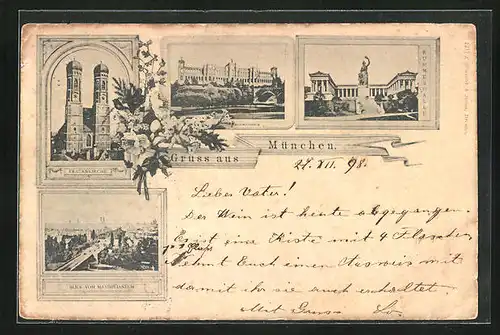 FRAUENKIRCHE
RUHMESHALLE
Gruss aus München.
BLICK VOM MAXIMILIANEUM
27. XII. 98.
Lieber Vater!
Der Wein ist heute abgegangen.
Es ist eine Kiste mit 4 Flaschen
nehmt Euch einen Ausweis mit
damit ihr sie auch erhaltet.
Mit Gruss